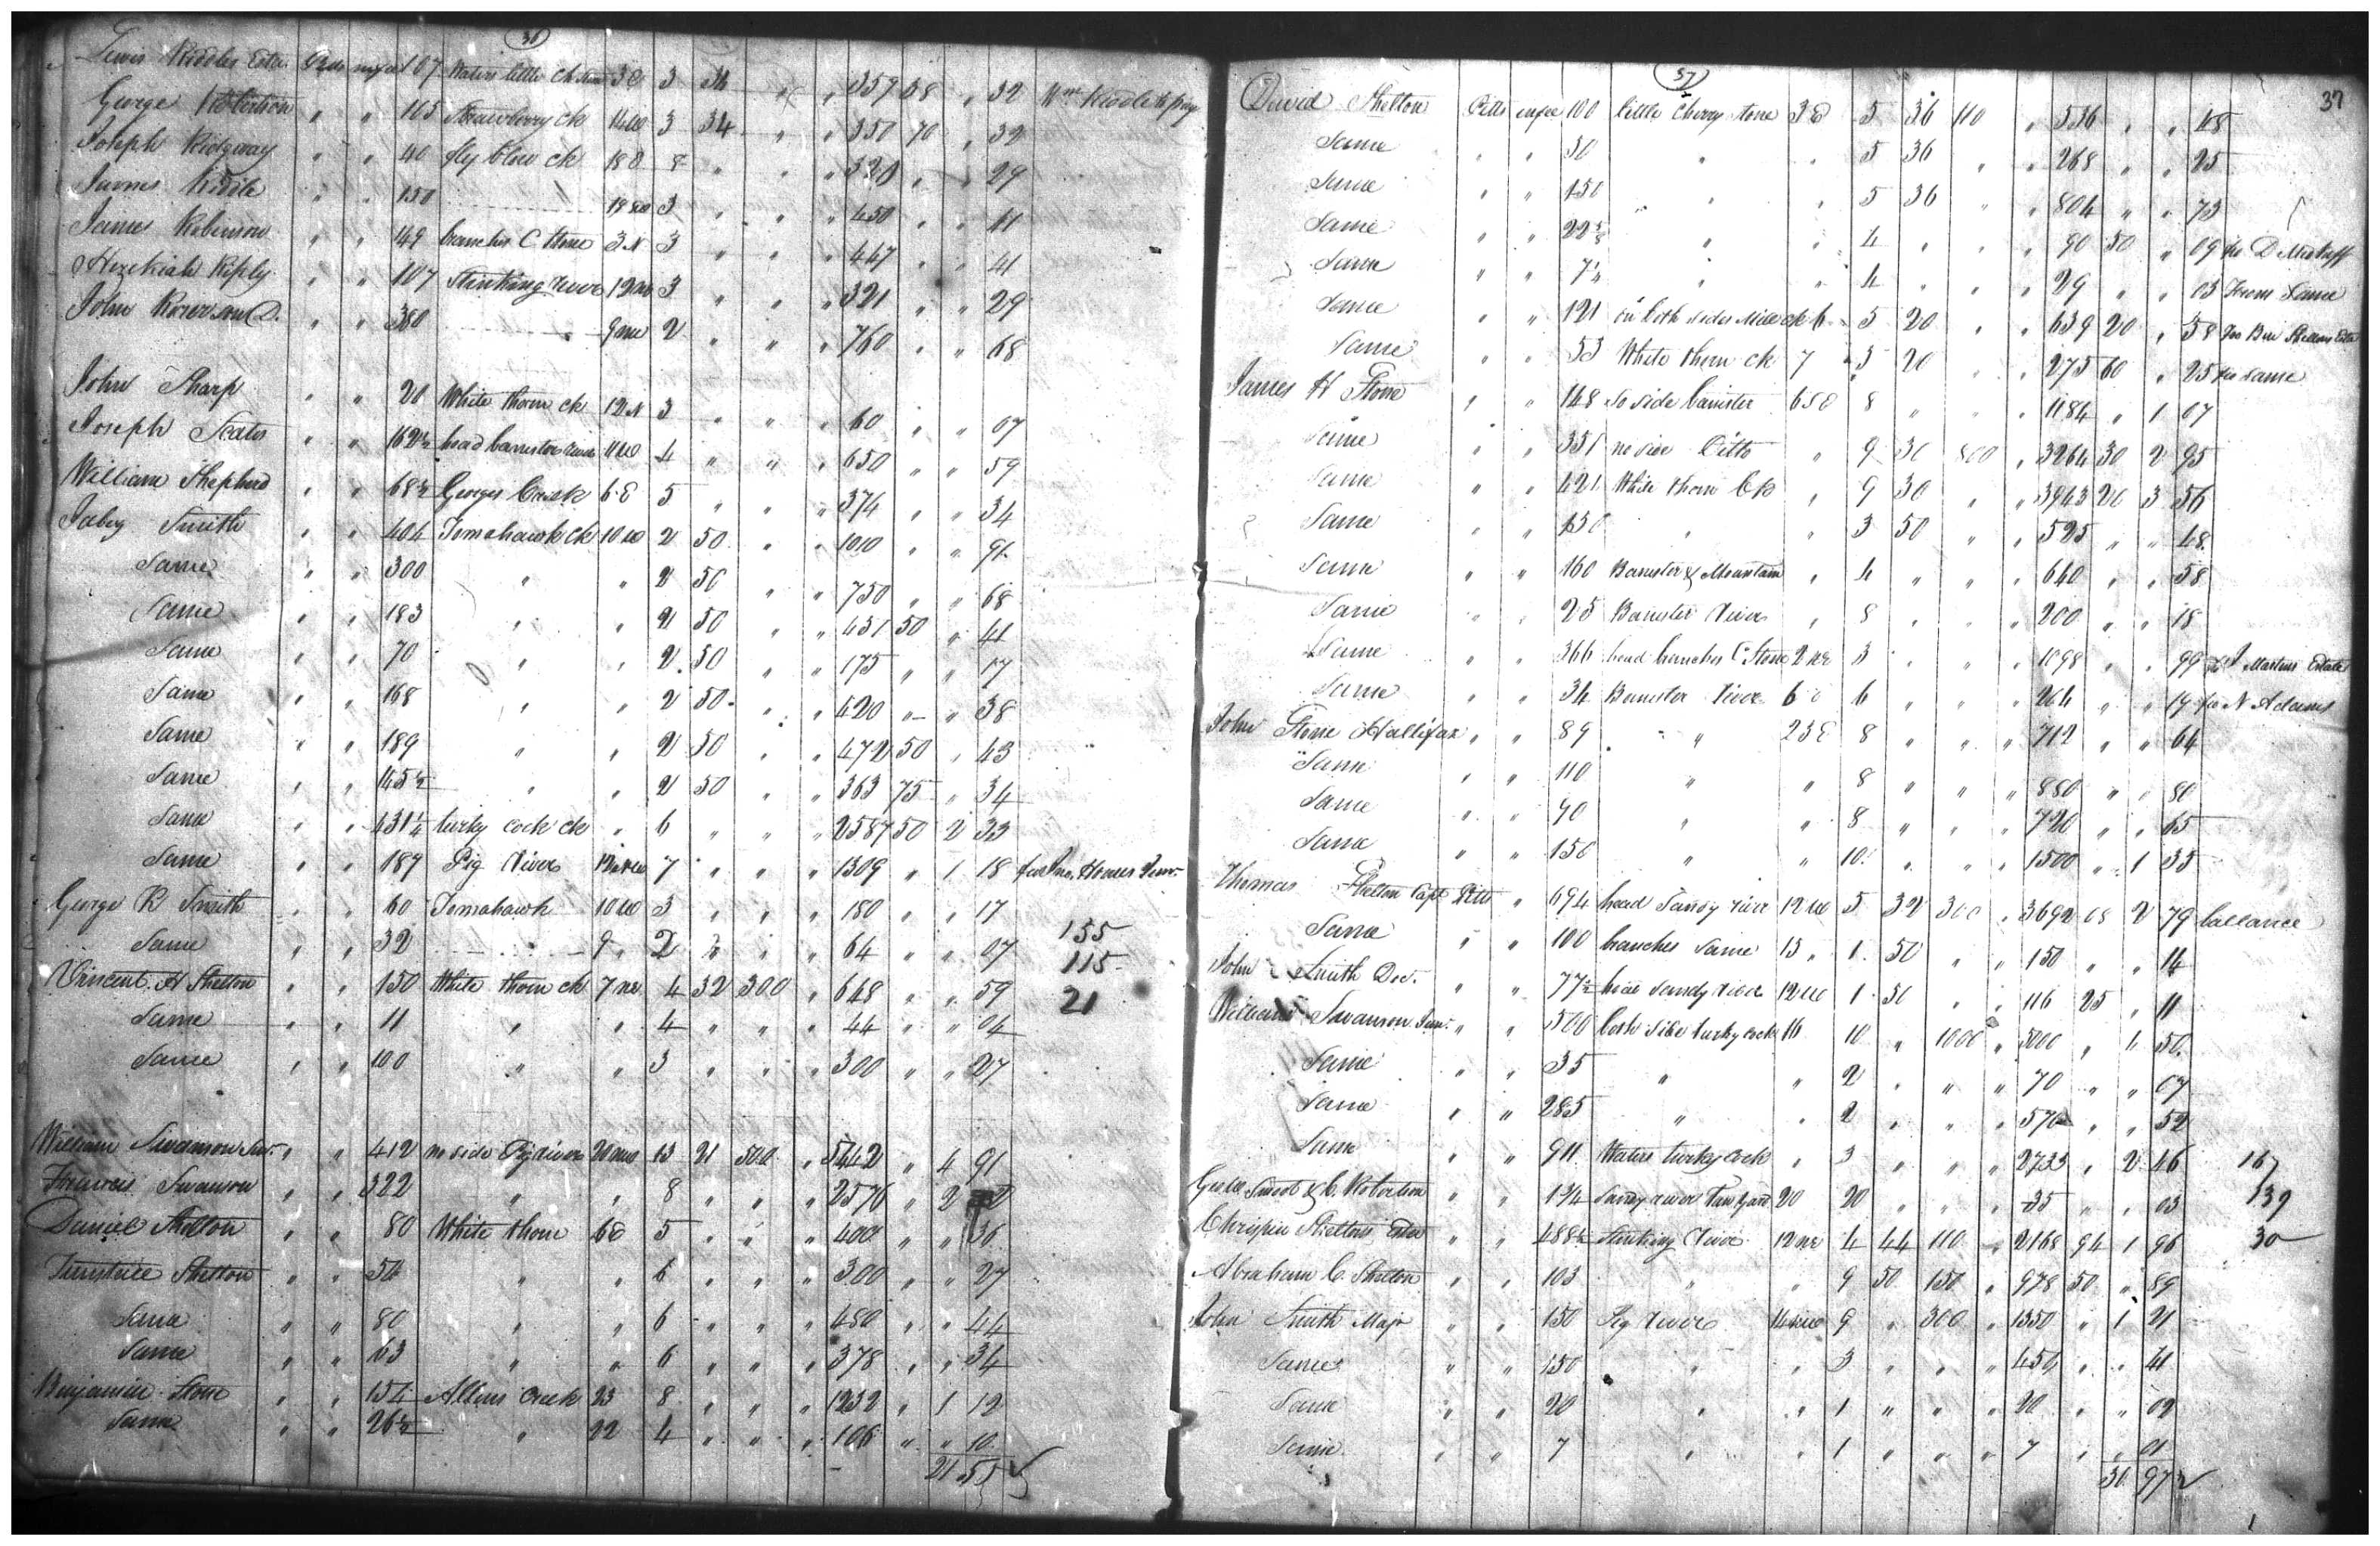 36
Lewis Riddles Esta. 107 Waters little ch stone 3 E 3 34 " " 359 58 " 32 Wm Riddle to pay
George Robertson " " 105 Strawberry ck 14 W 3 34 " " 350 70 " 32
Joseph Ridgway " " 40 fly blow ck 18 8 " " " 320 " " 29
James Riddle " " 150 18 3 " " " 450 " " 41
James Robinson " " 149 branches C Stone 3 N 3 " " " 447 " " 41
Hezekiah Riply " " 107 Stinking river 12 3 " " " 321 " " 29
John " " 380 9 2 " " " 760 " " 68
John Sharp " " 20 White thorn ck 12 N 3 " " " 60 " " 07
Joseph Scates " " 162½ head bannister river 11 W 4 " " " 650 " " 59
William Shepherd " " 68½ Georges Creek 6 E 5 " " " 374 " " 34
Jabez Smith " " 404 Tomahawk ck 10 W 2 50 " " 1010 " " 91
Same " " 300 " " 2 50 " " 750 " " 68
Same " " 183 " " 2 50 " " 431 50 " 41
Same " " 70 " " 2 50 " " 175 " " 17
Same " " 168 " " 2 50 " " 420 " " 38
Same " " 189 " " 2 50 " " 472 50 " 43
Same " " 145½ " " 2 50 " " 363 75 " 34
Same " " 431¼ turky cock ck " 6 " " " 2587 50 2 33
Same " " 187 Pig River 7 " " " 1309 " 1 18
George B Smith " " 60 Tomahawk 10 W 3 " " " 180 " " 17
Same " " 32 " 9 2 " " " 64 " " 07
155
115
21
Vincent H Shelton " " 150 White thorn ck 7 NE 4 32 300 " 648 " " 59
Same " " 11 " " 4 " " " 44 " " 04
Same " " 100 " " 3 " " " 300 " " 27
William Swanson Jur. " " 412 no side Pig river 20 13 21 500 " 5442 " 4 91
Francis Swanson " " 322 " " 8 " " " 2576 " 2
Daniel Shelton " " 80 White thorn 6 E 5 " " " 400 " " 36
Shelton " " 50 " " 6 " " " 300 " " 27
Same " " 80 " " 6 " " " 480 " " 44
Same " " 63 " " 6 " " " 378 " " 34
Benjamin Stone " " 154 Allens Creek 23 8 " " " 1232 " 1 12
Same " " 26½ " 22 4 " " " 106 " " 10
21 55
37
37
David Shelton Pitts 100 little Cherry stone 3 E 5 36 110 " 536 " " 48
Same " " 50 " " 5 36 " " 268 " " 25
Same " " 150 " " 5 36 " " 804 " " 73
Same " " 22⅝ " " 4 " " " 90 50 " 09 fro D
Same " " 7¼ " " 4 " " " 29 " " 03 From Same
Same " " 121 on both sides ck 6 5 20 " " 639 20 " 58 fro Ben Sheltons Esta
Same " " 53 White thorn ck 7 5 20 " " 275 60 " 25 fro same
James H Stone " " 148 So side banister 6 8 " " " 1184 " 1 07
Same " " 351 no side Ditto " 9 30 800 " 3264 30 2 95
Same " " 421 White thorn Ck " 9 30 " " 3963 20 3 56
Same " " 150 " " 3 50 " " 525 " " 48
Same " " 160 Banister & Mountain " 4 " " " 640 " " 58
Same " " 25 Banister River " 8 " " " 200 " " 18
Same " " 366 head branches C Stone 2 NE 3 " " " 1098 " " 99 J Martins Estate
Same " " 34 Banister River 6 6 " " " 204 " " 19 fro N Adams
John Stone Hallifax " " 89 " 23 E 8 " " " 712 " " 64
Same " " 110 " " 8 " " " 880 " " 80
Same " " 90 " " 8 " " " 720 " " 65
Same " " 150 " " 10 " " " 1500 " 1 35
Thomas Shelton Capt Pitts " 694 head Sandy river 12 W 5 32 300 " 3692 08 2 79 ballance
Same " " 100 branches same 13 " 1 50 " " 150 " " 14
John Smith Doc. " " 77½ Sandy river 12 W 1 50 " " 116 25 " 11
William Swanson Senr. " " 500 both side turky cock 16 10 " 1000 " 5000 " 4 50
Same " " 35 " " 2 " " " 70 " " 07
Same " " 285 " " 2 " " " 570 " " 52
Same " " 911 Waters turky cock " 3 " " " 2733 " 2 46 167
Smoot & C. Robertson " " 1¾ Sandy river Tan Yard 20 20 " " " 35 " " 03 139
Chrispin Sheltons Esta " " 488½ Stinking River 12 NE 4 44 110 " 2168 94 1 96 30
Abraham C. Shelton " " 103 " " 9 50 150 " 978 50 " 89
John Smith Majr " " 150 Pig river 14 9 " 300 " 1350 " 1 21
Same " " 150 " " 3 " " " 450 " " 41
Same " " 20 " " 1 " " " 20 " " 02
Same " " 7 " " 1 " " " 7 " " 01
30 97